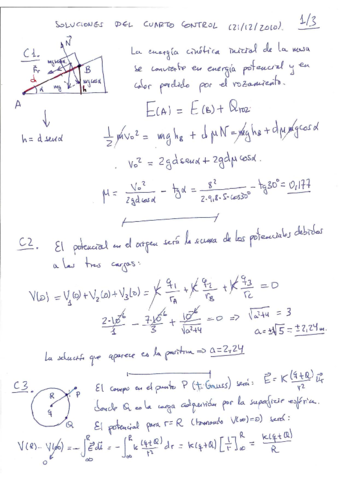 SOLUCIONES DEL CUARTO CONTROL (21/12/2010). 1/3
C1.
La energía cinética inicial de la masa
se convierte en energía potencial y en
calor perdido por el rozamiento.
E(A) = E(B) + Q_roz
h = d senα
1/2 m v₀² = m g h_B + d μ N = m g h_B + d μ m g cosα
v₀² = 2gd senα + 2gdμ cosα.
μ = v₀²/(2gd cosα) - tgα = 8²/(2·9,8·5·cos30°) - tg30° = 0,177
C2. El potencial en el origen será la suma de los potenciales debidos
a las tres cargas:
V(0) = V₁(0) + V₂(0) + V₃(0) = K q₁/r_A + K q₂/r_B + K q₃/r_C = 0
2·10⁻⁶/1 - 7·10⁻⁶/3 + 10⁻⁶/√(a²+4) = 0 ⇒ √(a²+4) = 3
a = ±√5 = ±2,24 m.
La solución que aparece es la positiva ⇒ a = 2,24
C3. El campo en el punto P (t. Gauss) será: E = K (q+Q)/r² u_r
donde Q es la carga adquirida por la superficie esférica.
El potencial para r = R (tomando V(∞)=0) será:
V(R) - V(∞) = -∫ E dr = -∫ K (q+Q)/r² dr = K(q+Q) [1/r] = K(q+Q)/R